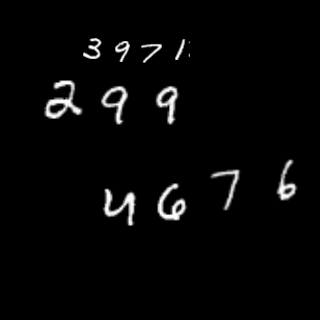 3971
299
4676